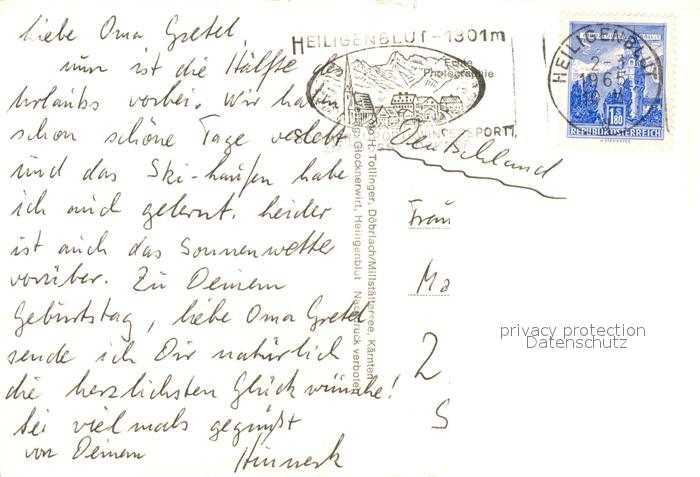 liebe Oma Gretel,
nun ist die Hälfte des
Urlaubs vorbei. Wir haben
schon schöne Tage verlebt
und das Ski-laufen habe
ich auch gelernt. Leider
ist auch das Sonnenwetter
vorüber. Zu Deinem
Geburtstag, liebe Oma Gretel
sende ich Dir natürlich
die herzlichsten Glückwünsche!
Sei vielmals gegrüßt
von Deinem Hinnerk
HEILIGENBLUT - 1301m
Echte
Photographie
HEILIGENBLUT
1965
1.80
REPUBLIK ÖSTERREICH
Deutschland
H. Tollinger, Döbriach/Millstättersee, Kärnten
Glocknerwirt, Heiligenblut Nachdruck verboten
Frau
Ma
2
S
privacy protection
Datenschutz